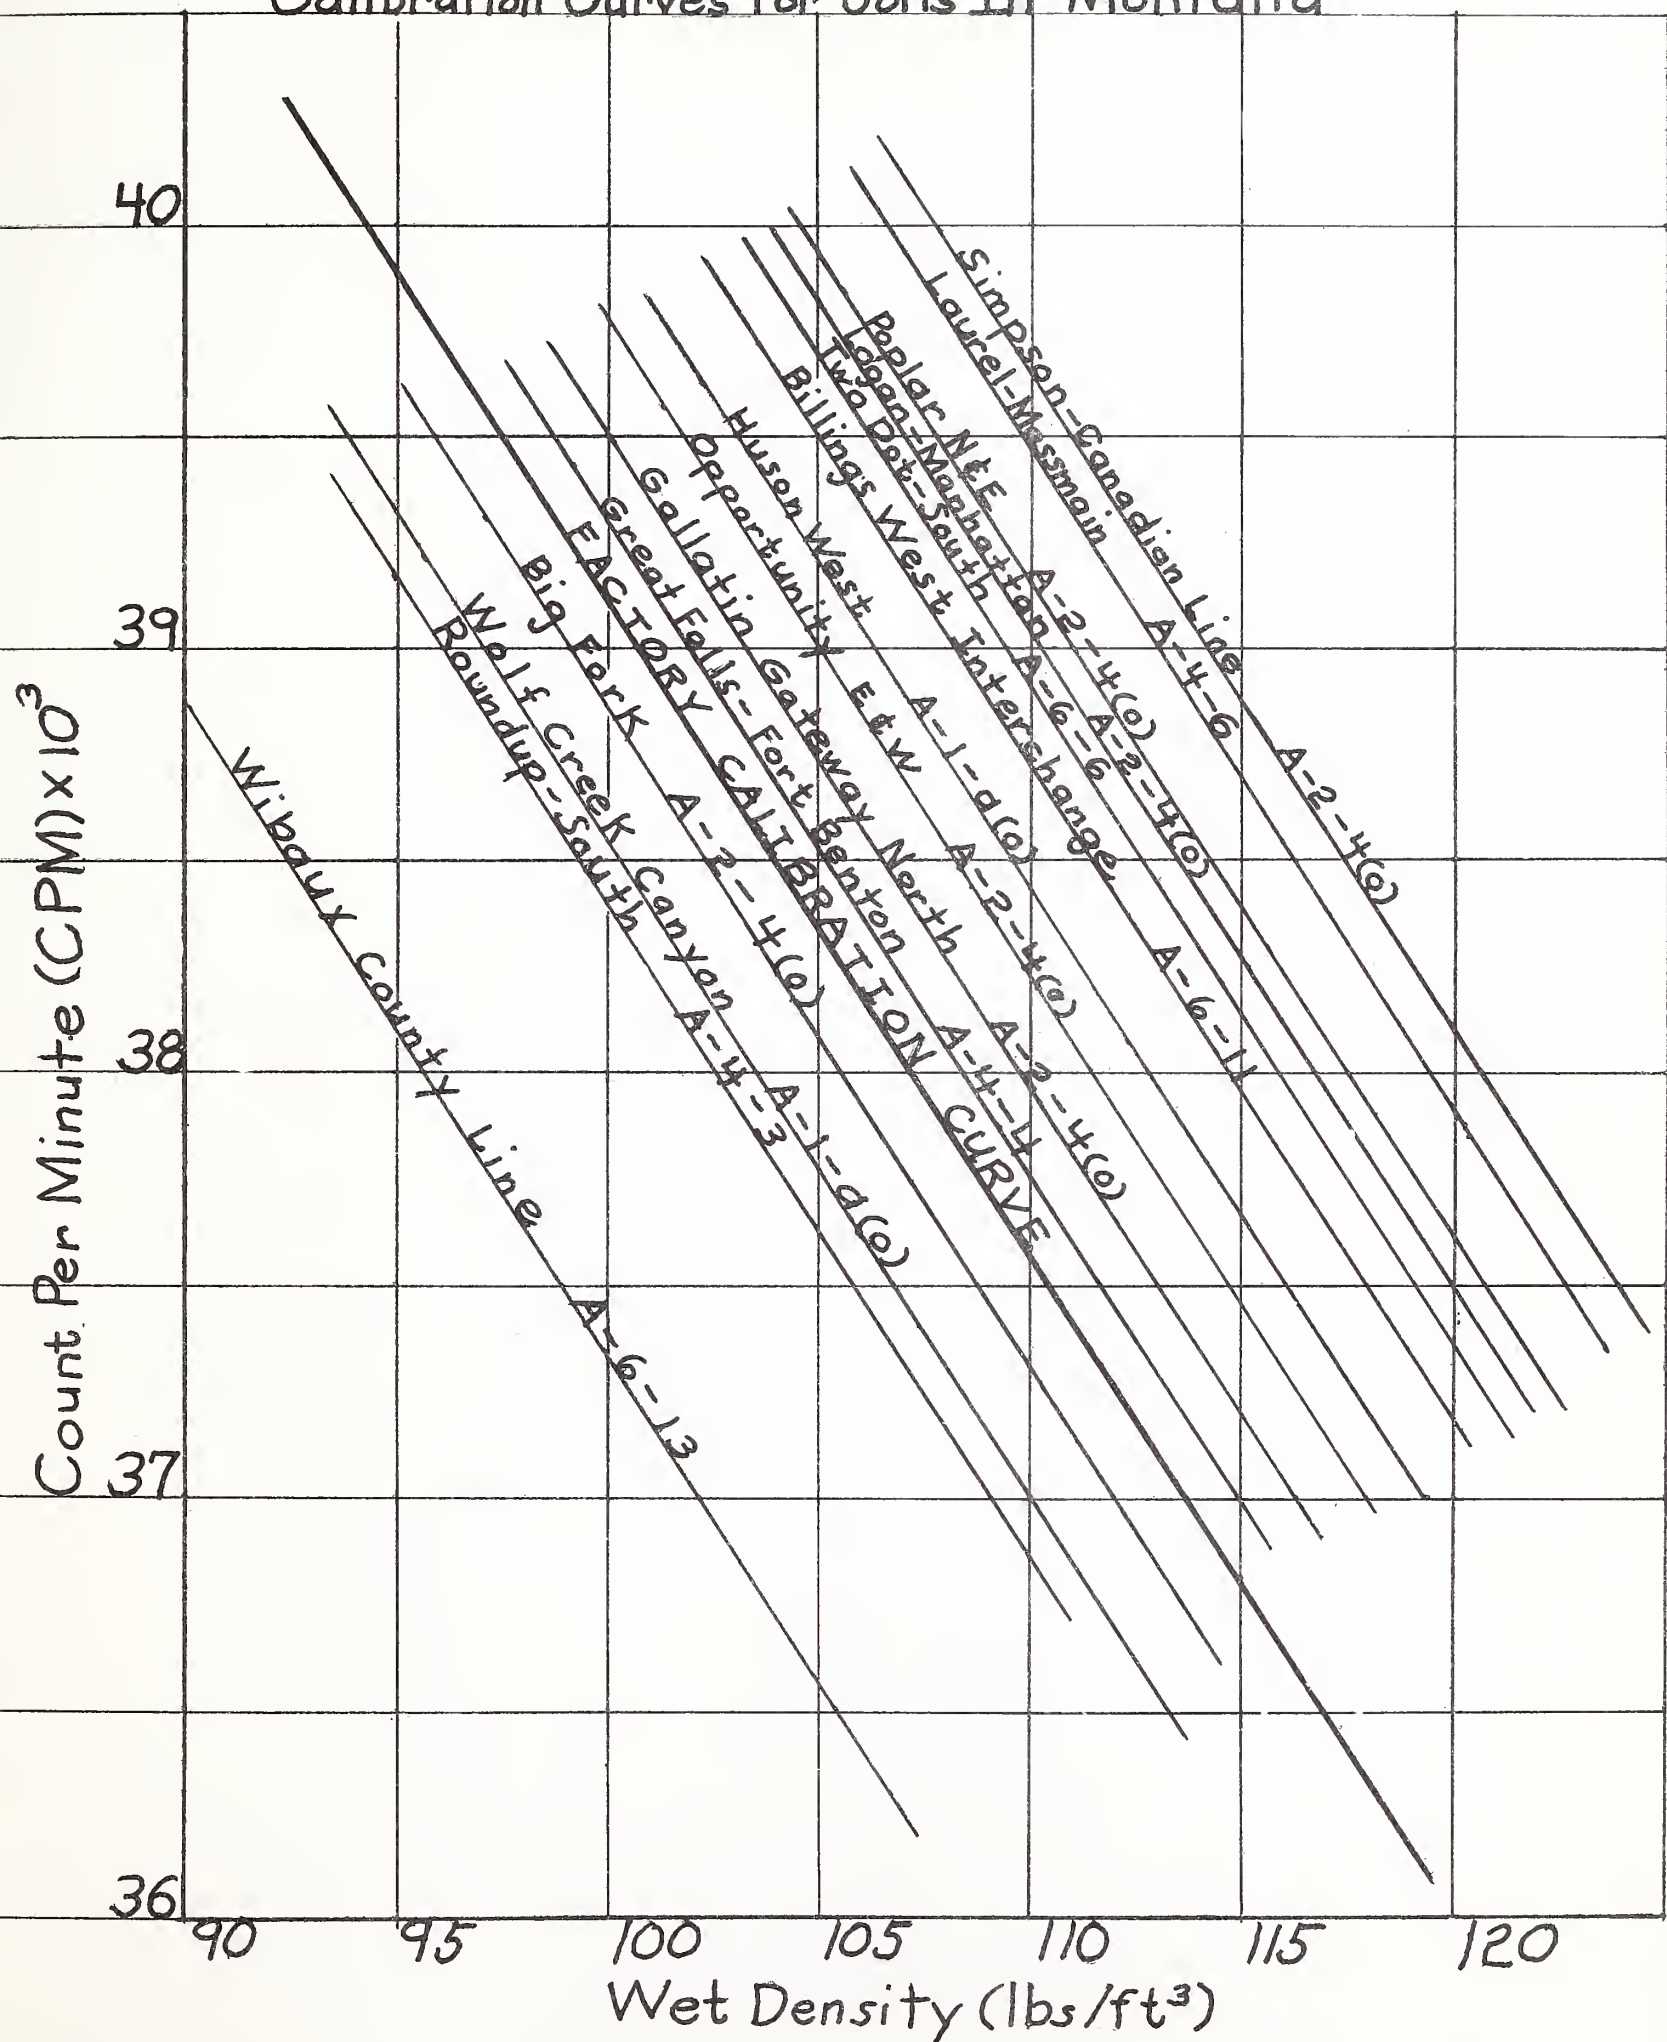 Calibration Curves for Soils In Montana
Count Per Minute (CPM) x 10³
40
39
38
37
36
Simpson-Canadian Line A-2-4(0)
Laurel-Messmain A-4-6
Poplar N&E A-2-4(0)
Logan-Manhattan A-2-4(0)
Two Dot-South A-6-6
Billings West Interchange A-6-11
Huson West A-1-a(0)
Opportunity E&W A-2-4(0)
Gallatin Gateway North A-2-4(0)
Great Falls-Fort Benton A-4-4
FACTORY CALIBRATION CURVE
Big Fork A-2-4(0)
Wolf Creek Canyon A-1-a(0)
Roundup-South A-4-3
Wibaux County Line A-6-13
90 95 100 105 110 115 120
Wet Density (lbs/ft³)